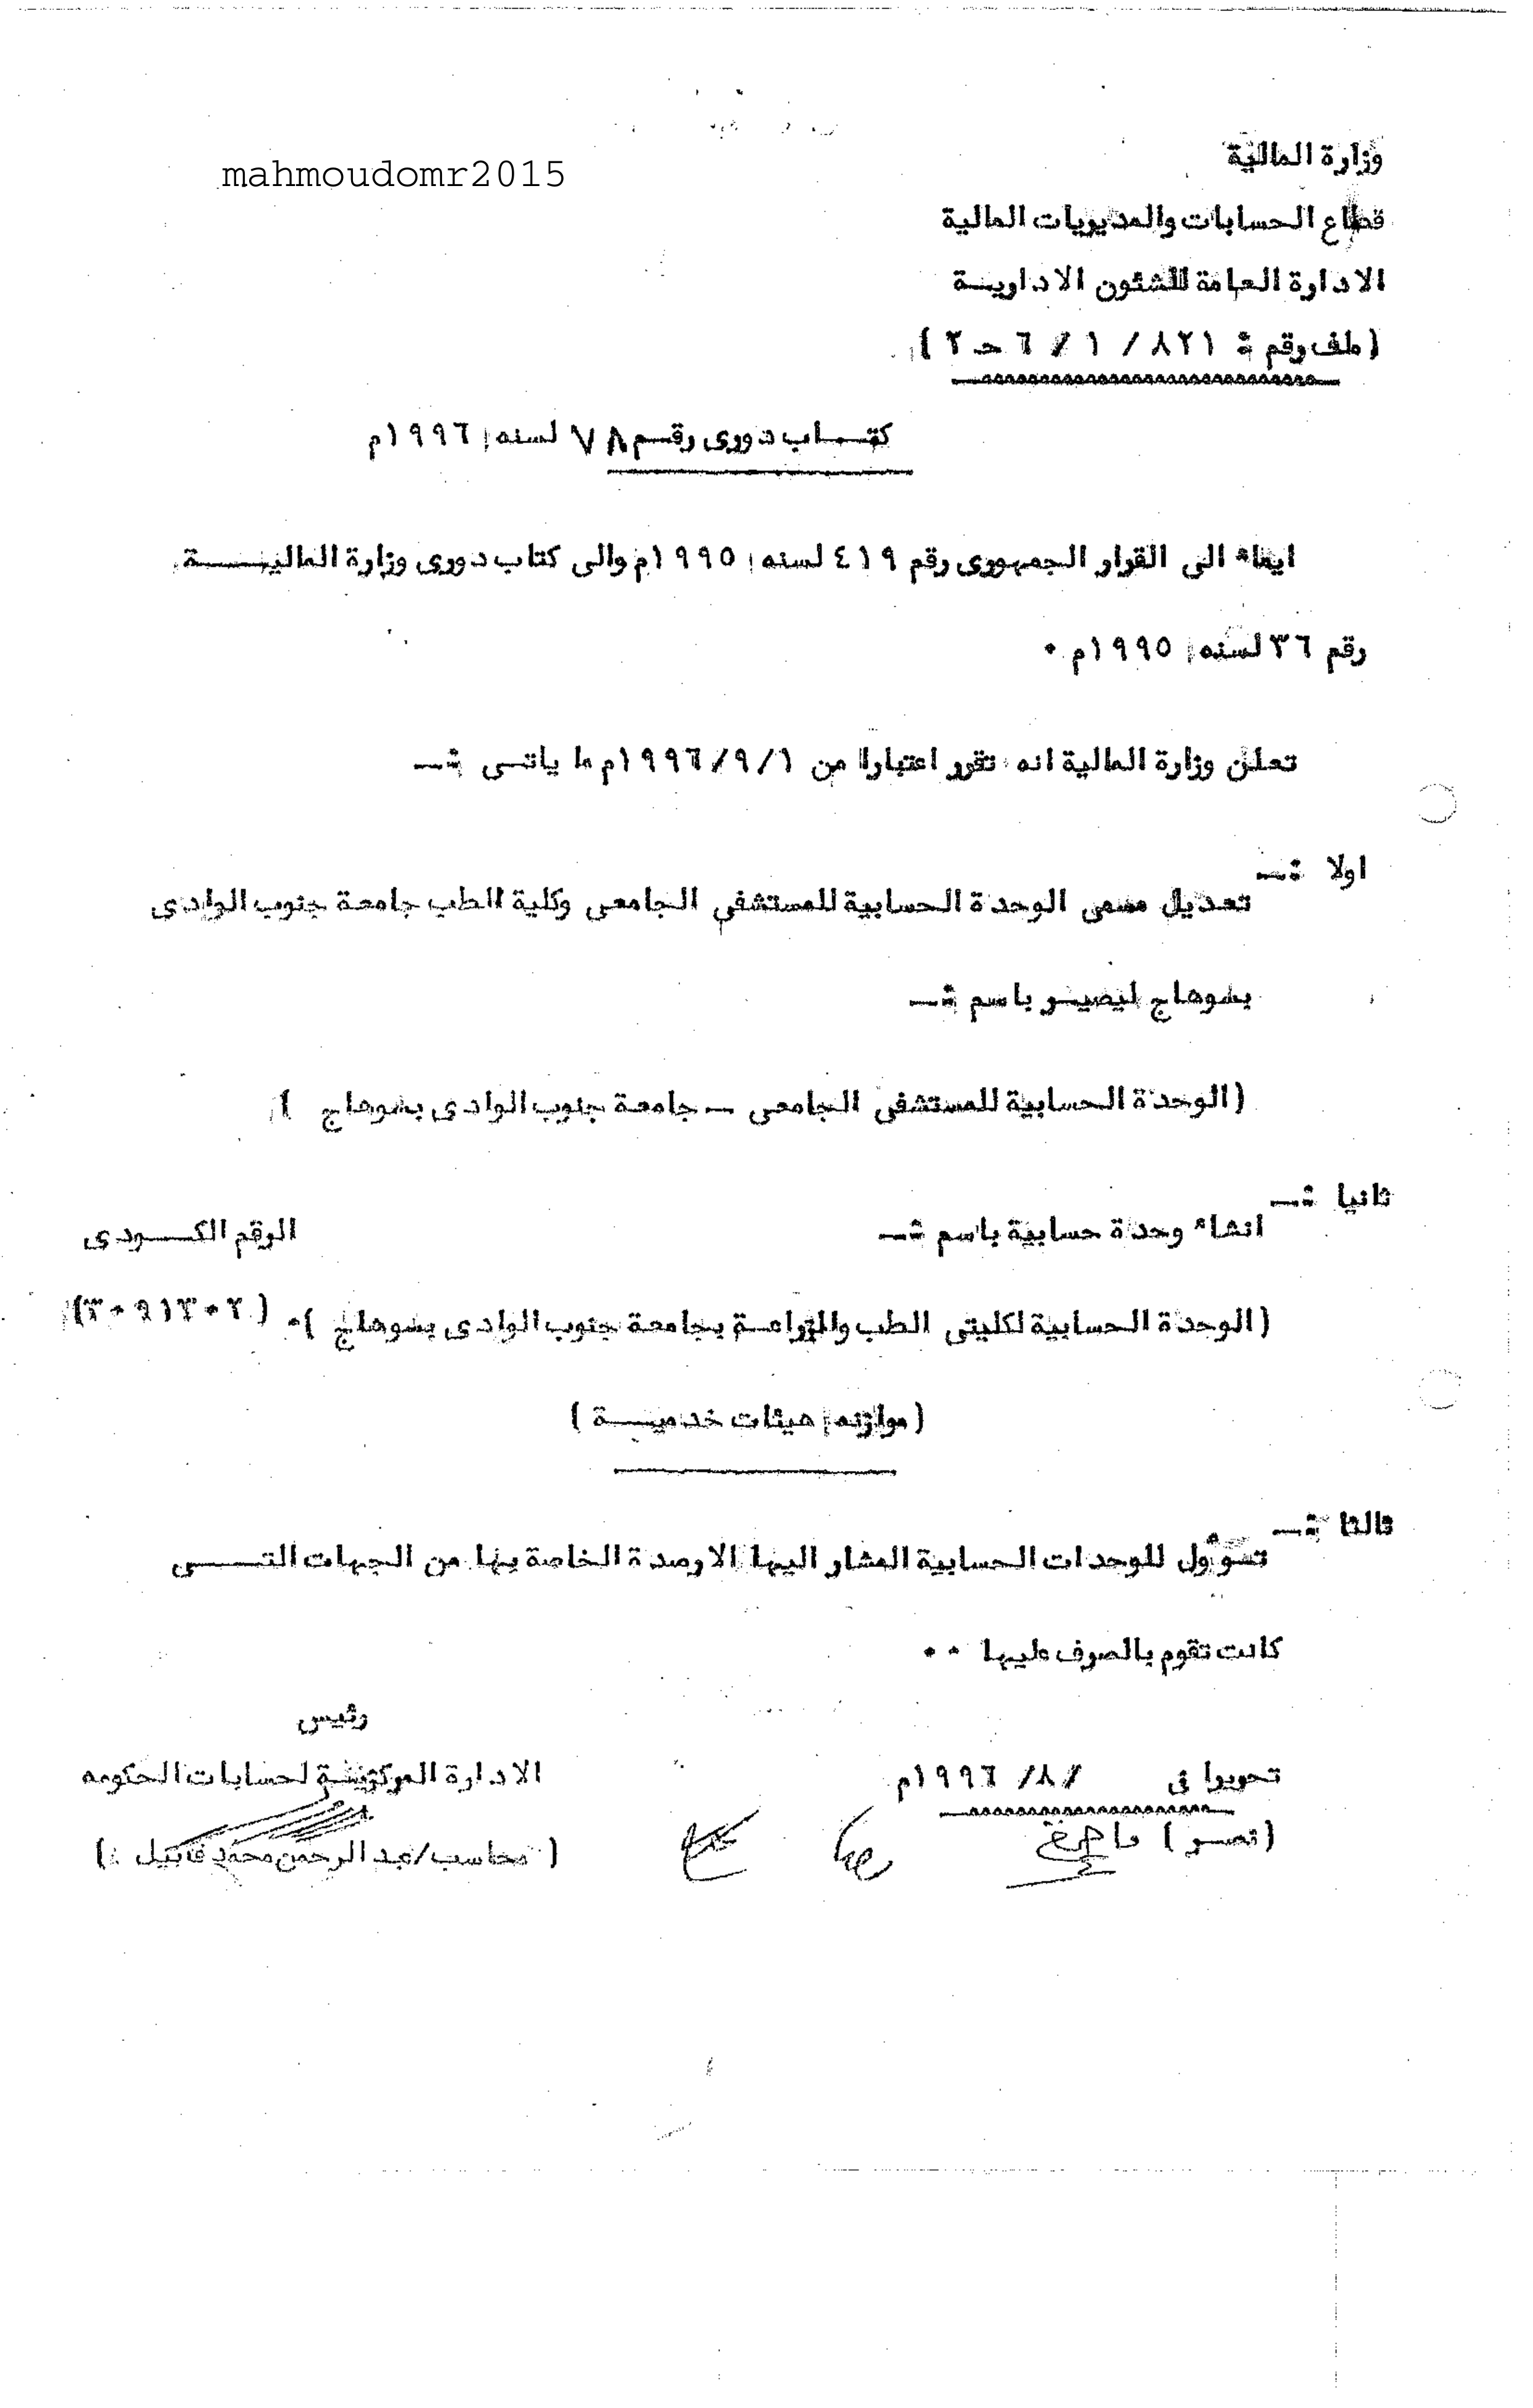 mahmoudomr2015
وزارة المالية
قطاع الحسابات والمديريات المالية
الادارة العامة للشئون الادارية
(ملف رقم : ٨٢١ / ١ / ٦ حـ ٢ )
كتـــاب دورى رقــم ٧٨ لسنه ١٩٩٦م
ايماء الى القرار الجمهورى رقم ٤١٩ لسنه ١٩٩٥م والى كتاب دورى وزارة الماليــــة
رقم ٣٦ لسنه ١٩٩٥م ٠
تعلن وزارة المالية انه تقرر اعتبارا من ١/٩/١٩٩٦م ما ياتــى :ـ
اولا :ـ
تعديل مسمى الوحدة الحسابية للمستشفى الجامعى وكلية الطب جامعة جنوب الوادى
بسوهاج ليصيــر باسم :ـ
(الوحدة الحسابية للمستشفى الجامعى ــ جامعة جنوب الوادى بسوهاج )
ثانيا :ـ
انشاء وحدة حسابية باسم :ـ الرقم الكــــودى
(الوحدة الحسابية لكليتى الطب والزراعــة بجامعة جنوب الوادى بسوهاج )٠ (٣٠٩١٣٠٢)
(موازنه هيئات خدميــــة )
ثالثا :ـ
تــؤول للوحدات الحسابية المشار اليها الارصدة الخاصة بها من الجهات التــــــى
كانت تقوم بالصرف عليها ٠٠
رئيس
تحريرا فى / ٨/ ١٩٩٦م الادارة المركزيــة لحسابات الحكومه
(نصــر ) ( محاسب/عبد الرحمن محمد قابيل )